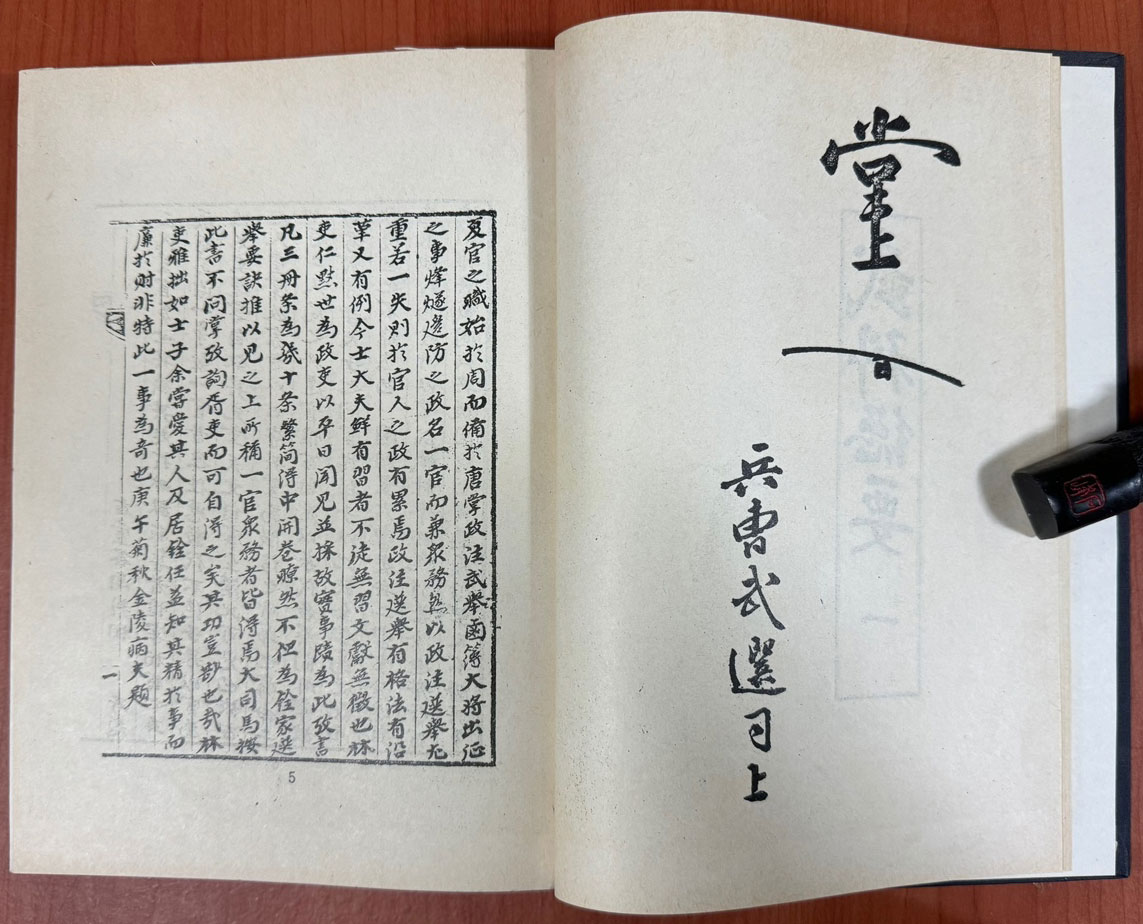 堂上
日
兵曹武選司上
夏官之職始於周而備於唐掌政注武擧鹵簿大將出征
之事烽燧邊防之政名一官而兼衆務然以政注選擧尤
重若一失則於官人之政有累焉政注選擧有格法有沿
革又有例今士大夫鮮有習者不徒無習文獻無徵也林
吏仁黙世為政吏以平日聞見並採故實事為此攷言
凡三冊条為幾十条繁簡淂中開卷瞭然不但為銓家選
擧要訣推以見之上所稱一官衆務者皆淂焉大司馬按
此書不問掌攷詢胥吏而可自淂之矣其功豈尠也哉林
吏雅拙如士子余嘗愛其人及居銓任益知其精於事而
廉於財非特此一事為奇也庚午菊秋金陵病夫題
一
5